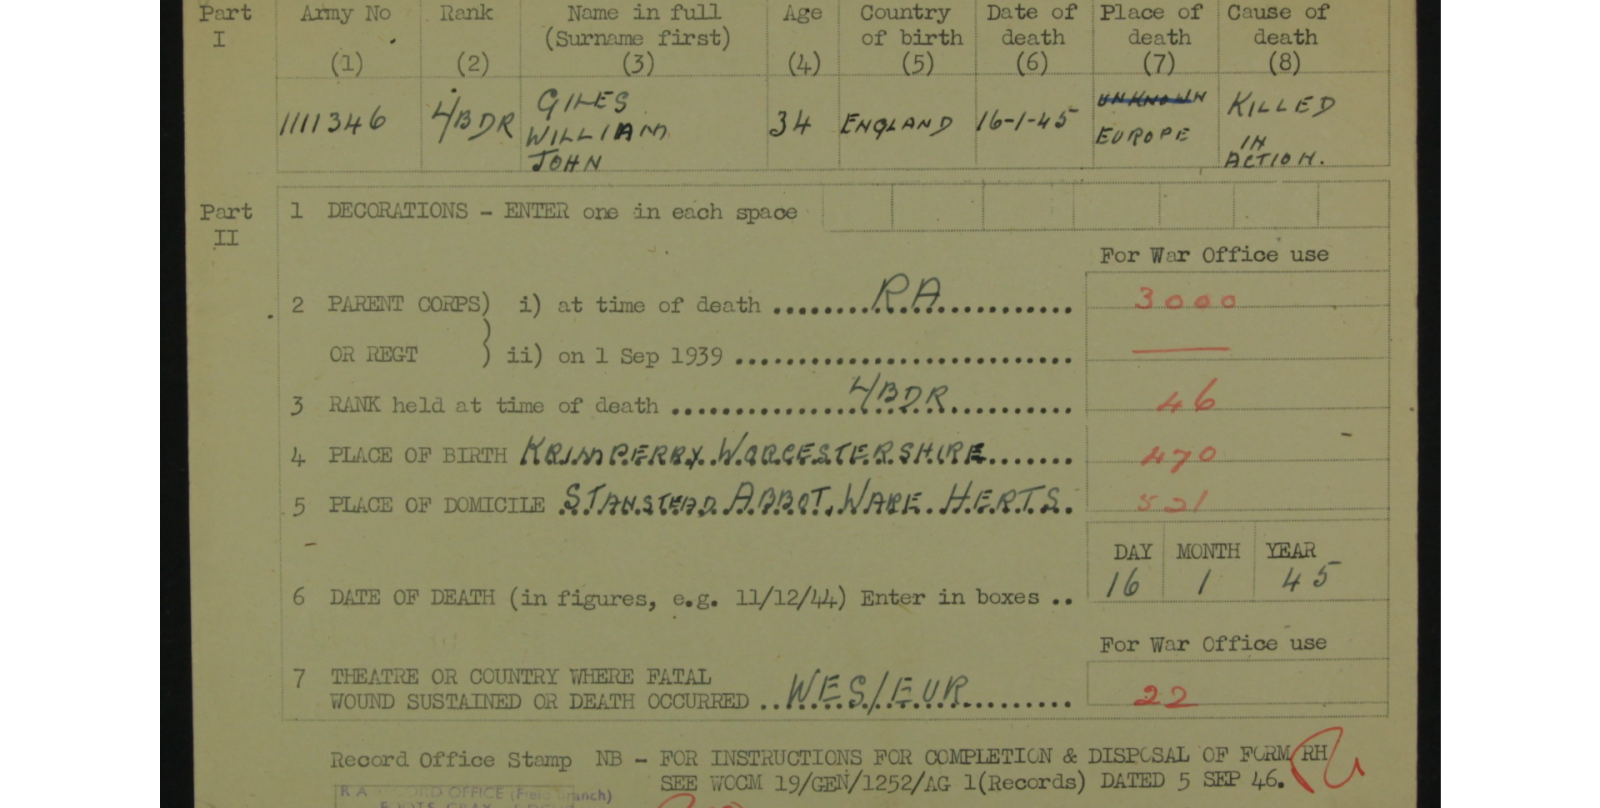 Part I Army No Rank Name in full Age Country Date of Place of Cause of
(Surname first) of birth death death death
(1) (2) (3) (4) (5) (6) (7) (8)
1111346 L/BDR GILES WILLIAM JOHN 34 ENGLAND 16-1-45 UNKNOWN EUROPE KILLED IN ACTION.
Part II 1 DECORATIONS - ENTER one in each space
For War Office use
2 PARENT CORPS) i) at time of death ........RA............ 3000
OR REGT ) ii) on 1 Sep 1939 ..............................
3 RANK held at time of death ............L/BDR........... 46
4 PLACE OF BIRTH KRIMPERRY. WORCESTERSHIRE....... 470
5 PLACE OF DOMICILE STANSTEAD. ABBOT. WARE. HERTS. 521
DAY MONTH YEAR
6 DATE OF DEATH (in figures, e.g. 11/12/44) Enter in boxes .. 16 1 45
For War Office use
7 THEATRE OR COUNTRY WHERE FATAL
WOUND SUSTAINED OR DEATH OCCURRED ..WES/EUR......... 22
Record Office Stamp NB - FOR INSTRUCTIONS FOR COMPLETION & DISPOSAL OF FORM RH
SEE WOCM 19/GEN/1252/AG 1(Records) DATED 5 SEP 46.
R A RECORD OFFICE (Field Branch)